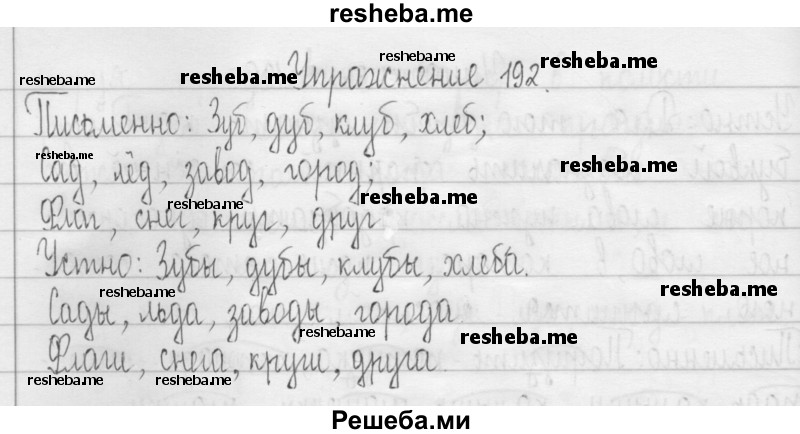 resheba.me
resheba.me
Упражнение 192.
resheba.me resheba.me resheba.me
Письменно: Зуб, дуб, клуб, хлеб;
resheba.me resheba.me
Сад, лёд, завод, город;
resheba.me
Флаг, снег, круг, друг.
Устно: Зубы, дубы, клубы, хлеба.
resheba.me resheba.me
Сады, льда, заводы, города
resheba.me resheba.me
Флаги, снега, круги, друга.
resheba.me resheba.me
Решеба.ми